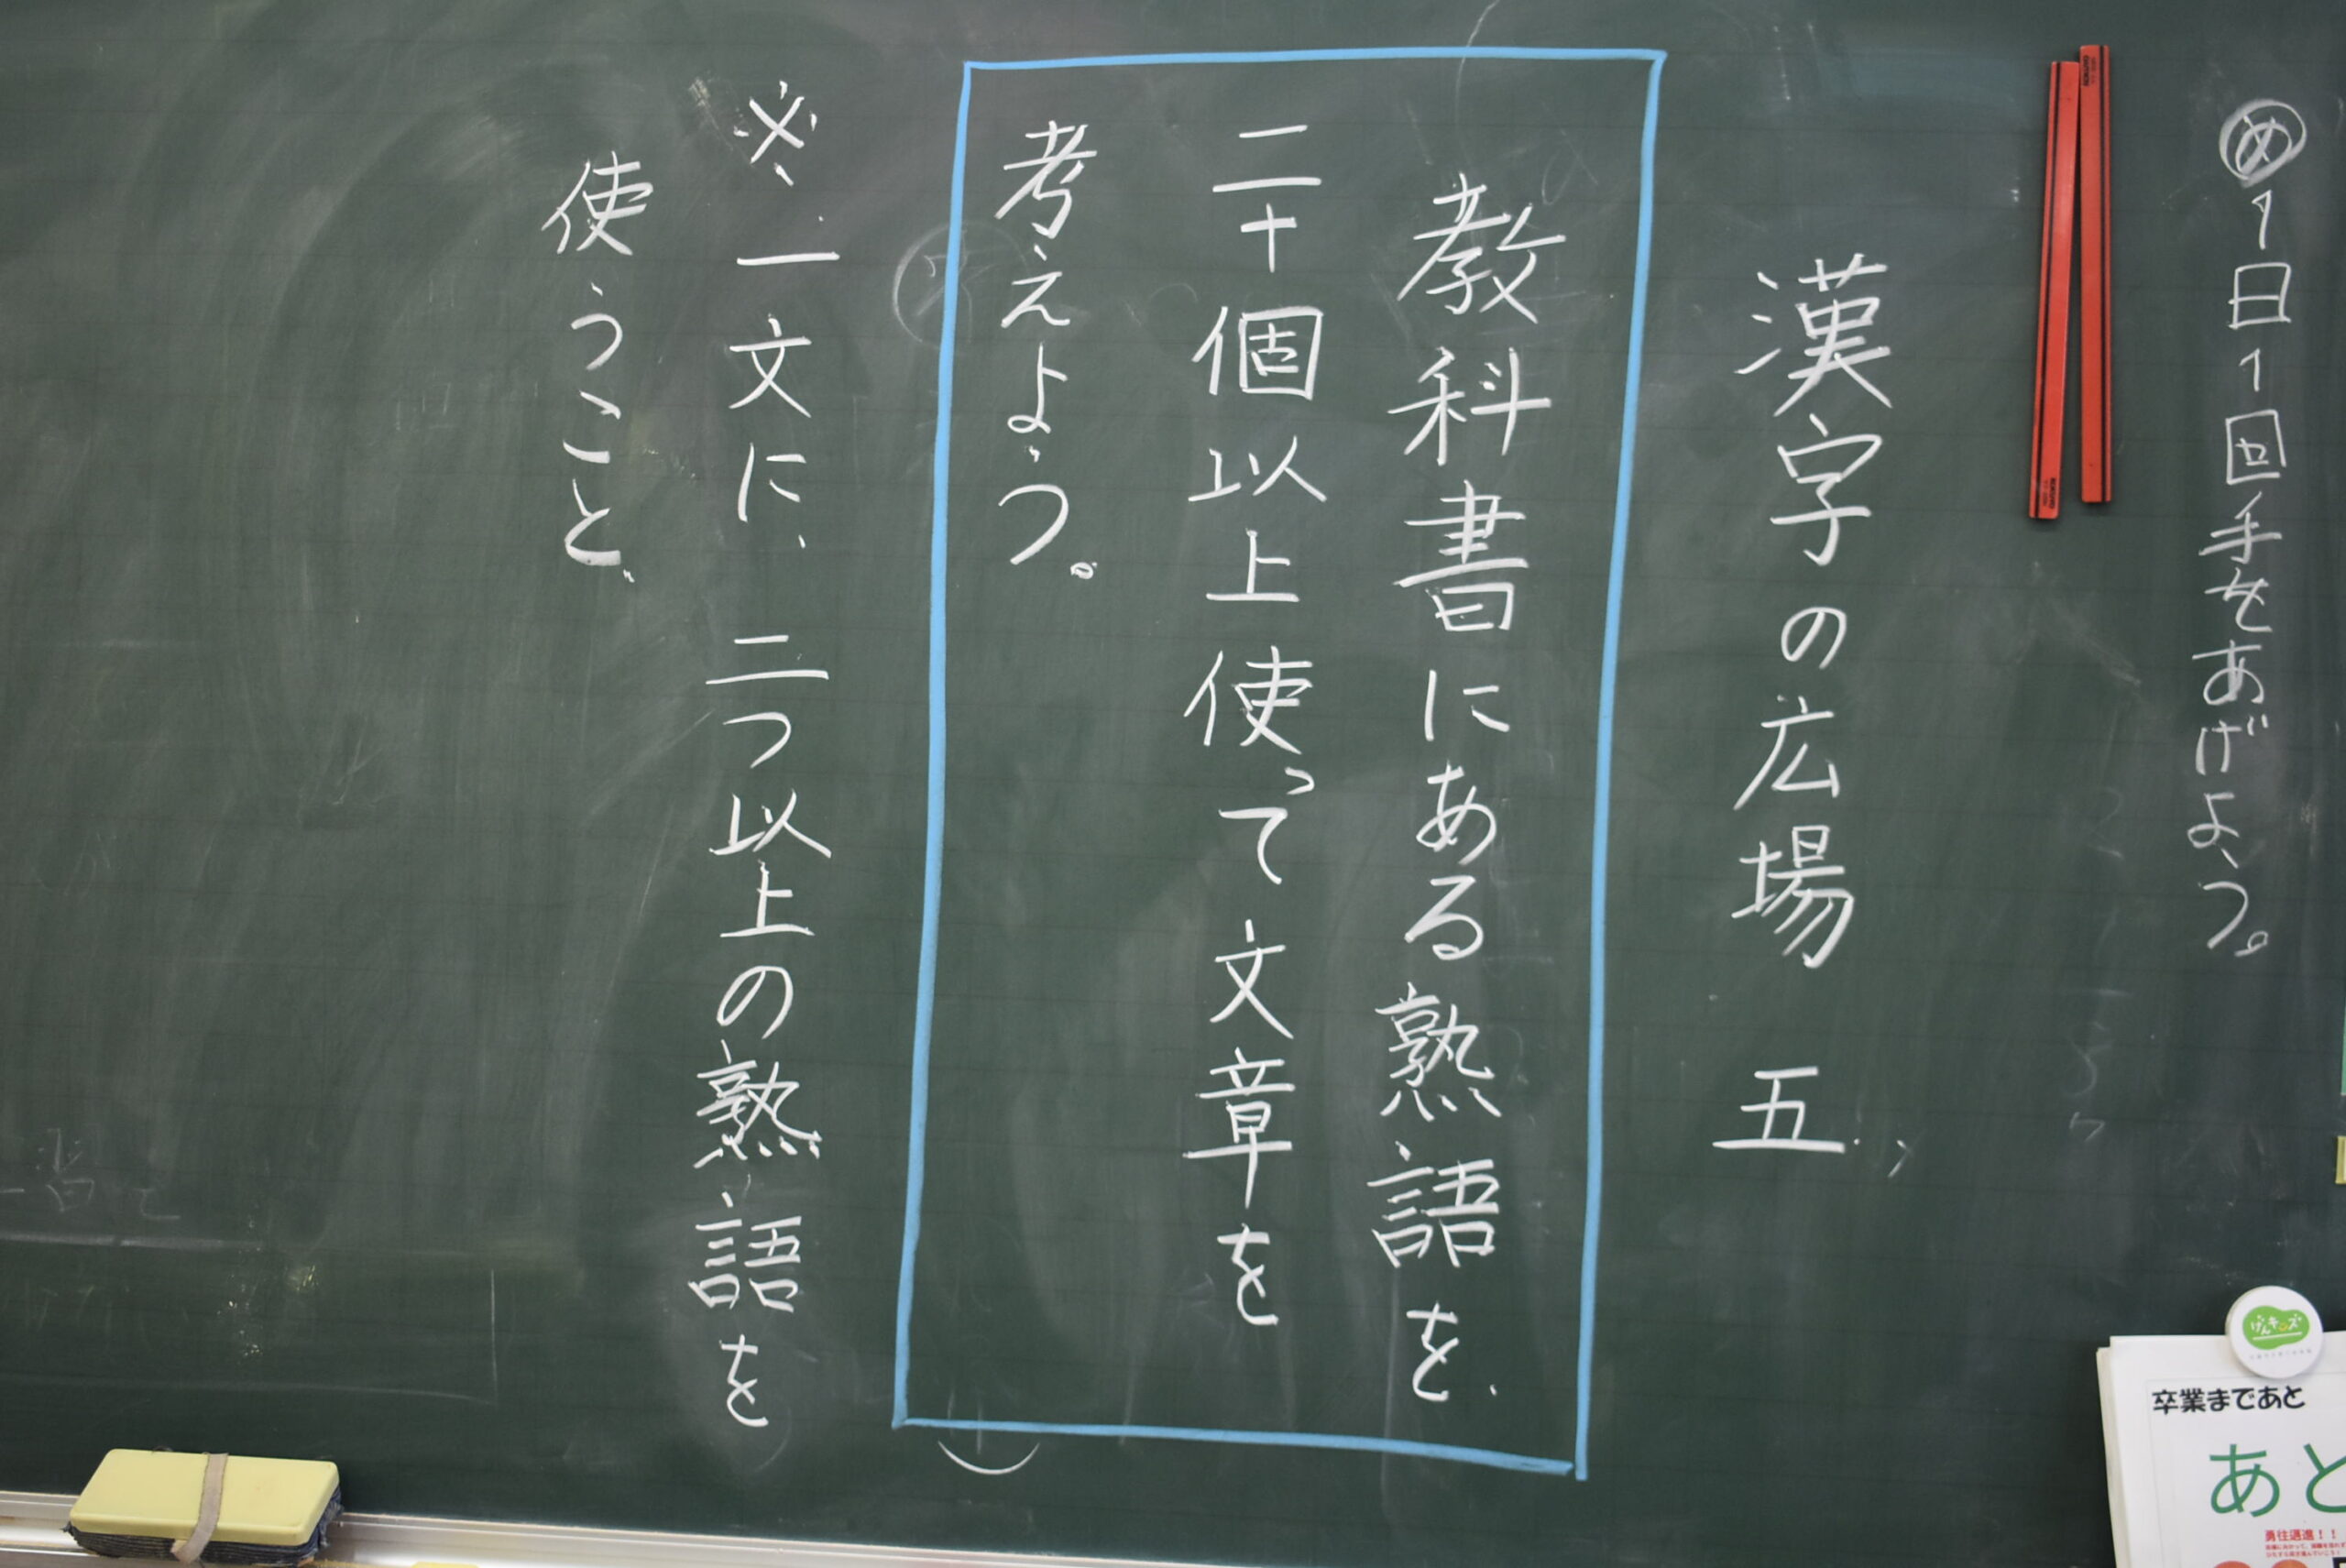 め1日1回手をあげよう。
漢字の広場 五
教科書にある熟語を、
二十個以上使って文章を
考えよう。
※一文に、二つ以上の熟語を
使うこと。
げんキッズ
卒業まであと
あと
勇往邁進！！